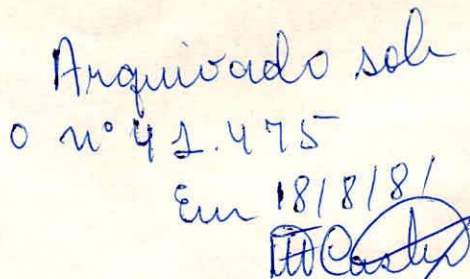 Arquivado sob
o nº 41.475
Em 18/8/81